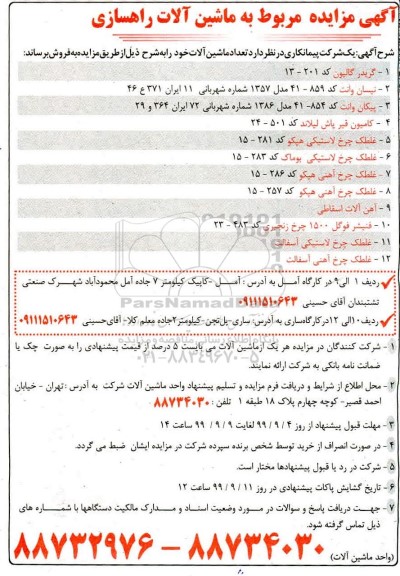 آگهی مزایده مربوط به ماشین آلات راهسازی
شرح آگهی: یک شرکت پیمانکاری در نظر دارد تعداد ماشین آلات خود را به شرح ذیل از طریق مزایده به فروش برساند:
۱ - گریدر گالیون کد ۲۰۱ - ۱۳
۲ - نیسان وانت کد ۸۵۹ - ۴۱ مدل ۱۳۵۷ شماره شهربانی ۱۱ ایران ۳۷۱ ع ۴۶
۳ - پیکان وانت کد ۸۵۴- ۴۱ مدل ۱۳۸۶ شماره شهربانی ۷۲ ایران ۳۶۴ و ۲۹
۴ - کامیون قیر پاش لیلاند کد ۵۰۱ - ۲۴
۵ - غلطک چرخ لاستیکی هپکو کد ۲۸۱ - ۱۵
۶ - غلطک چرخ لاستیکی بوماگ کد ۲۸۳ - ۱۵
۷ - غلطک چرخ آهنی هپکو کد ۲۸۶ - ۱۵
۸ - غلطک چرخ آهنی هپکو کد ۲۵۷ - ۱۵
۹ - آهن آلات اسقاطی
۱۰ - فنیشر فوگل ۱۵۰۰ چرخ زنجیری کد ۴۸۳ - ۲۳
۱۱ - غلطک چرخ لاستیکی آسفالت
۱۲ - غلطک چرخ آهنی آسفالت
ردیف ۱ الی ۹ در کارگاه آمل به آدرس: آمل -کاپیک کیلومتر ۷ جاده آمل محمودآباد شهرک صنعتی
تشتبندان آقای حسینی ۰۹۱۱۱۵۱۰۶۴۳
ردیف ۱۰ الی ۱۲ در کارگاه ساری به آدرس: ساری-پل تجن-کیلومتر ۲ جاده معلم کلا- آقای حسینی ۰۹۱۱۱۵۱۰۶۴۳
ParsNamadData
۰۲۱-۸۸۳۴۹۶۷۰-۵
۱ - شرکت کنندگان در مزایده هر یک از ماشین آلات می بایست ۵ درصد از قیمت پیشنهادی را به صورت چک یا
ضمانت نامه بانکی به شرکت ارائه نمایند.
۲ - محل اطلاع از شرایط و دریافت فرم مزایده و تسلیم پیشنهاد واحد ماشین آلات شرکت به آدرس : تهران - خیابان
احمد قصیر- کوچه چهارم پلاک ۱۸ طبقه ۱ تلفن : ۸۸۷۳۴۰۳۰
۳ - مهلت قبول پیشنهاد از روز ۴ / ۹ / ۹۹ لغایت ۹ / ۹ / ۹۹ ساعت ۱۴
۴ - در صورت انصراف از خرید توسط شخص برنده سپرده شرکت در مزایده ایشان ضبط می گردد.
۵ - شرکت در رد یا قبول پیشنهادها مختار است.
۶ - تاریخ گشایش پاکات پیشنهادی در روز ۱۱ / ۹ / ۹۹ ساعت ۱۲
۷ - جهت دریافت پاسخ و سوالات در مورد وضعیت اسناد و مدارک مالکیت دستگاهها با شماره های
ذیل تماس گرفته شود.
(واحد ماشین آلات) ۸۸۷۳۴۰۳۰ - ۸۸۷۳۲۹۷۶